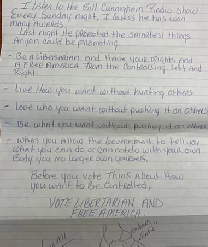 I listen to the Bill Cunningham Radio Show
Every Sunday night, I guess he has won
many Awards.
Last night He promoted the smartest things
Anyone could be promoting
- Be a Libertarian and Have your Rights and
A Free America From the Controlling Left and
Right.
- Live How you want without hurting others
- Love who you want without pushing it on others
- Be what you want without pushing it on others
- When you Allow the Government to tell you
what you can do or cannot do with your own
Body you No longer own yourself.
Before you vote Think About How
you want to be Controlled,
VOTE LIBERTARIAN AND
FREE AMERICA